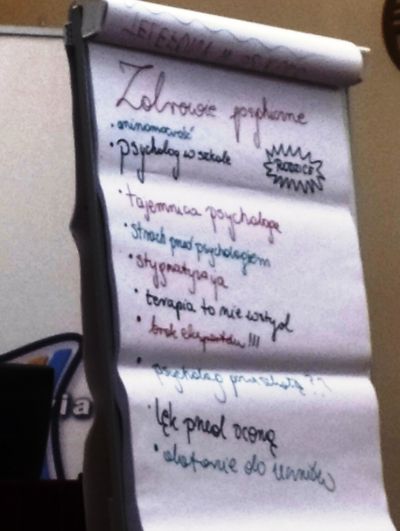 Zdrowie psychiczne
• anonimowość
• psycholog w szkole
RODZICE
• tajemnica psychologa
• strach przed psychologiem
• stygmatyzacja
• terapia to nie wstyd
• brak ekspertów !!!
• psycholog ??
• lęk przed oceną
• do uczniów
ia